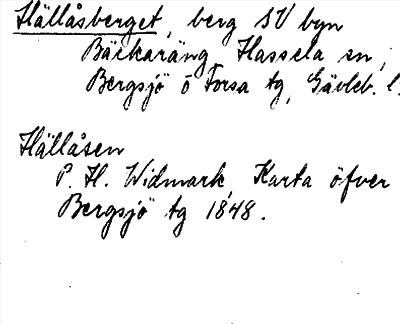 Hällåsberget, berg SV byn
Bäckaräng Hassela sn,
Bergsjö o Forsa tg, Gävleb. l.
Hällåsen
P. H. Widmark, Karta öfver
Bergsjö tg 1848.